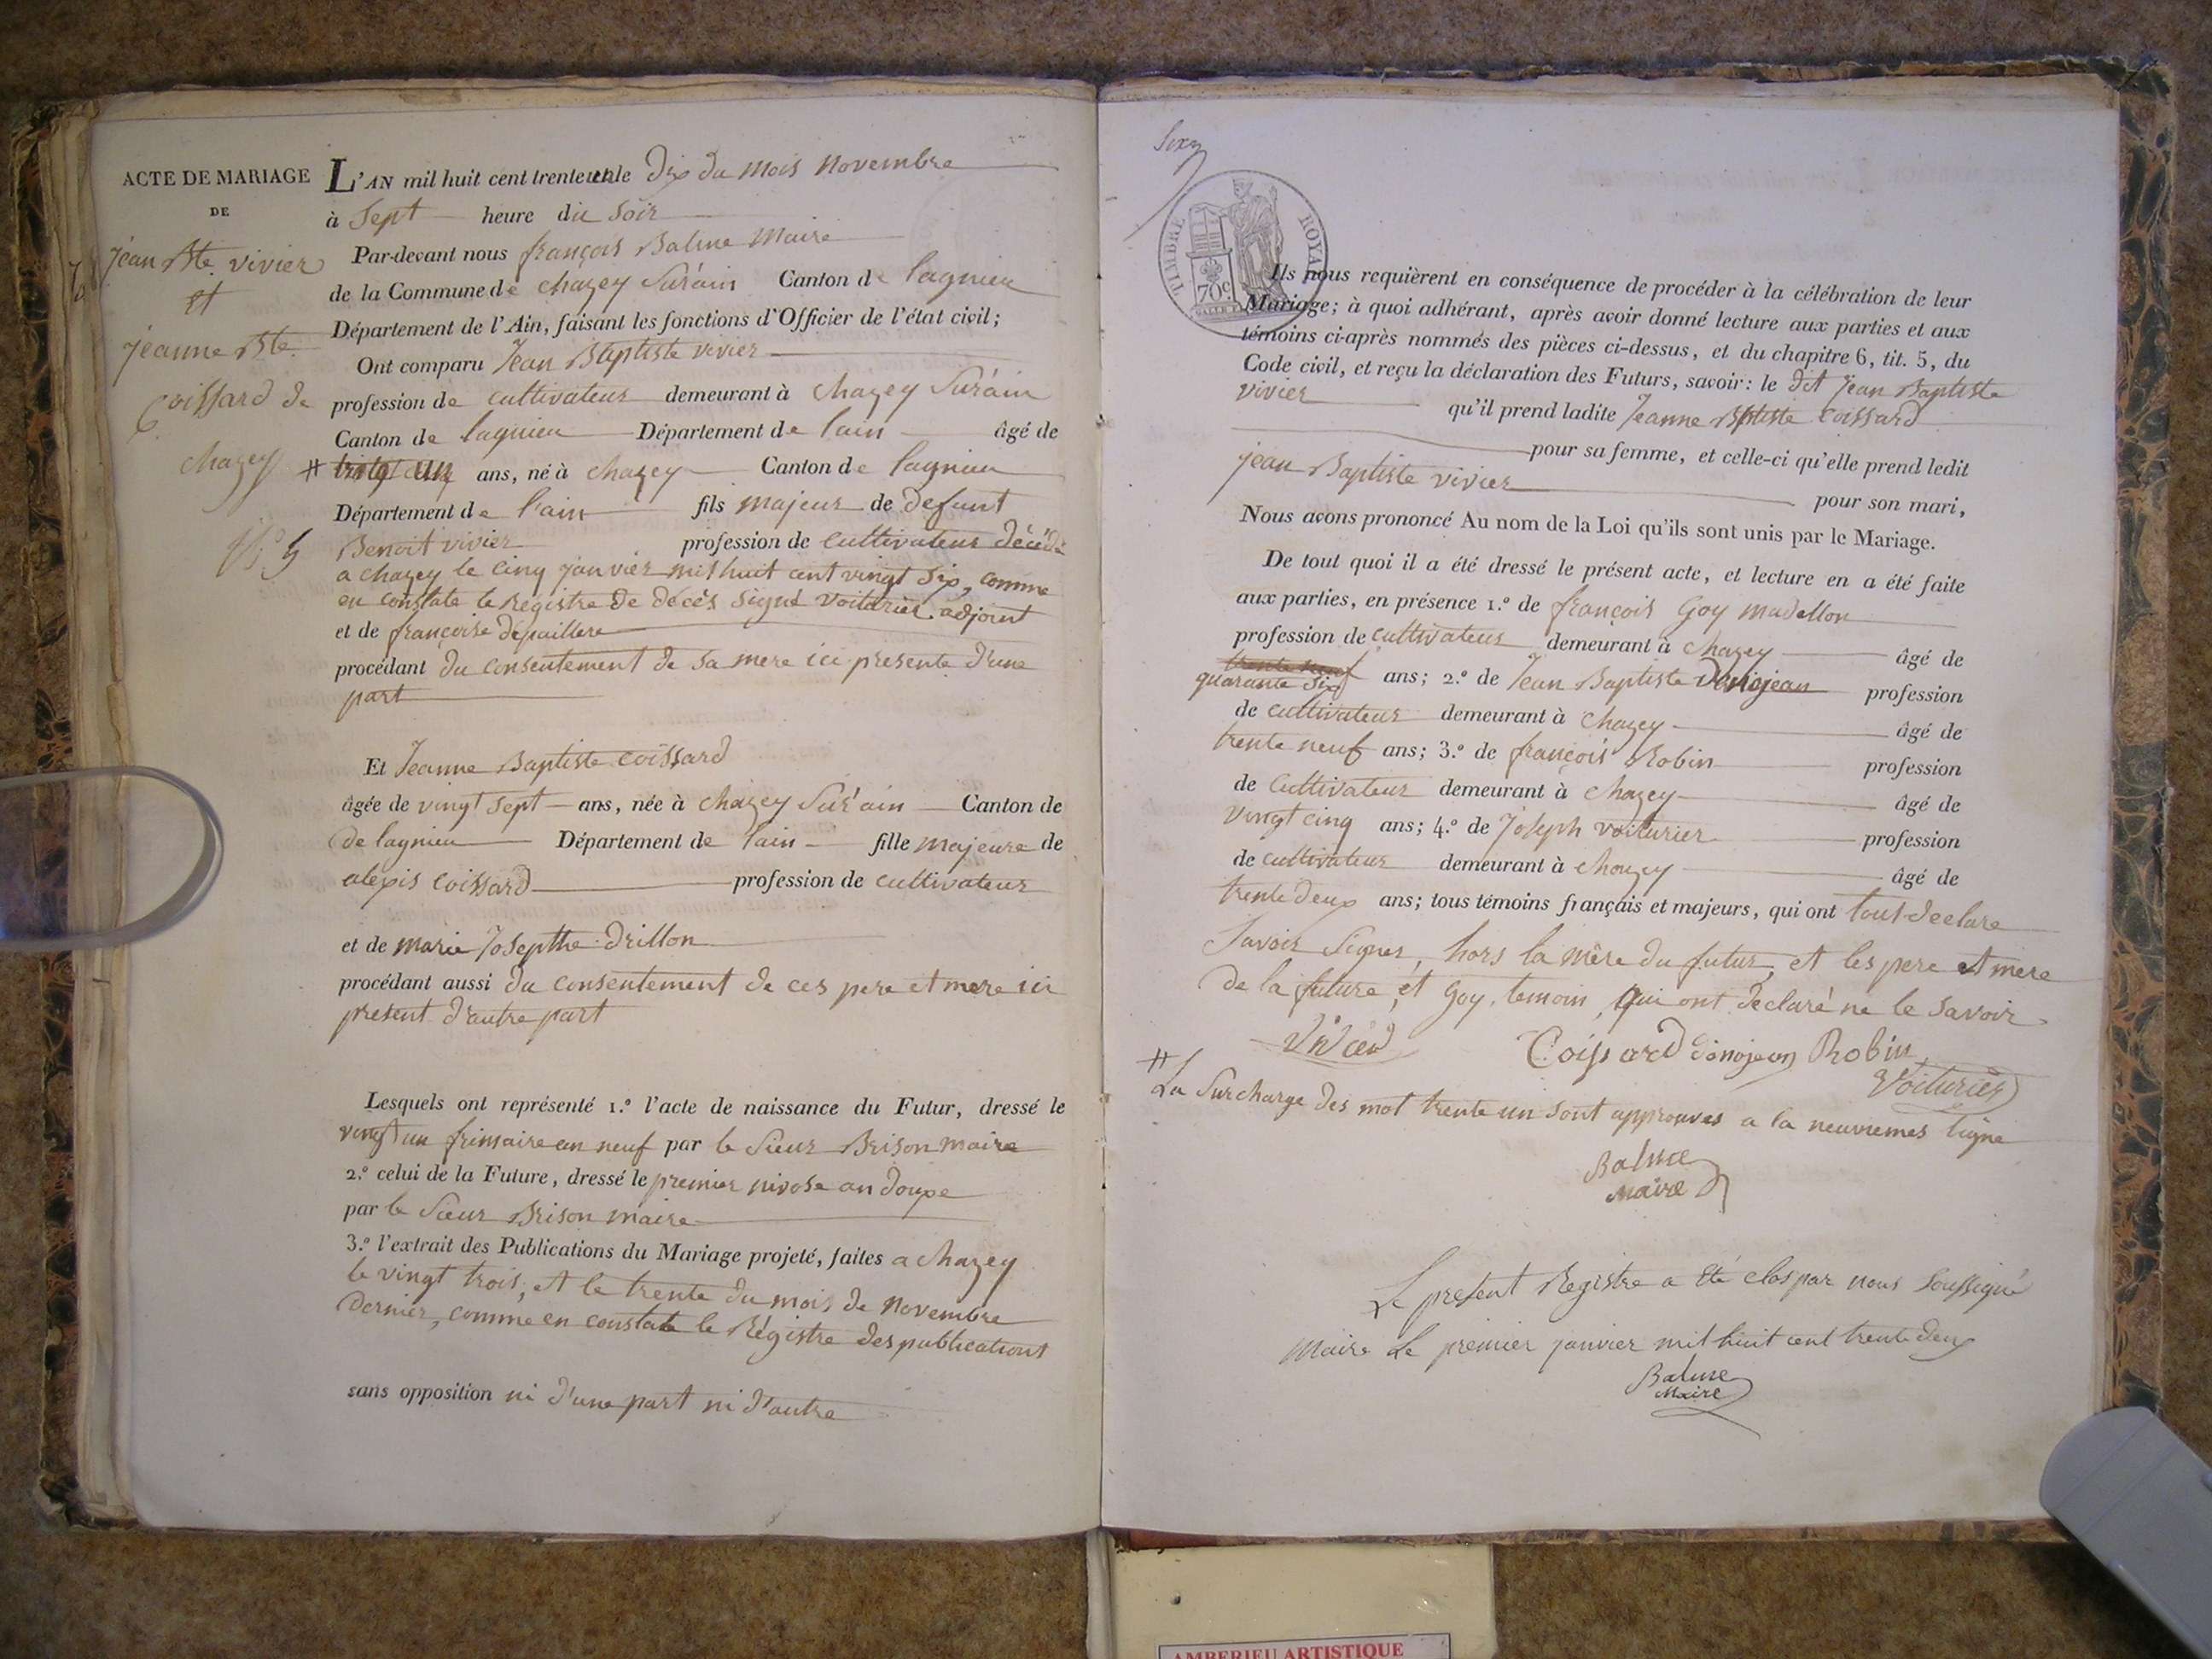 ACTE DE MARIAGE
DE
jean Bte vivier
et
jeanne Bte
Coissard de
chazey
L'AN mil huit cent trente un le dix du mois novembre
à Sept heure du Soir
Par-devant nous françois Balme Maire
de la Commune de chazey Sur ain Canton de lagnieu
Département de l'Ain, faisant les fonctions d'Officier de l'état civil;
Ont comparu Jean Baptiste vivier
profession de cultivateur demeurant à chazey Sur ain
Canton de lagnieu Département de lain âgé de
# trente un ans, né à chazey Canton de lagnieu
Département de l'ain fils majeur de defunt
Benoit vivier profession de cultivateur décédé
a chazey le cinq janvier mil huit cent vingt Six, comme
en constate le Registre de décès Signé voiturier adjoint
et de françoise depaillere
procédant du consentement de sa mere ici presente d'une
part
Et Jeanne Baptiste coissard
âgée de vingt sept ans, née à chazey Sur ain Canton de
de lagnieu Département de lain fille majeure de
alexis coissard profession de cultivateur
et de marie Josepthe drillon
procédant aussi du consentement de ces pere et mere ici
present d'autre part
Lesquels ont représenté 1.º l'acte de naissance du Futur, dressé le
vingt un frimaire an neuf par le Sieur Brison maire
2.º celui de la Future, dressé le premier nivose an douze
par le Sieur Brison maire
3.º l'extrait des Publications du Mariage projeté, faites a chazey
le vingt trois, et le trente du mois de novembre
dernier, comme en constate le Régistre des publications
sans opposition ni d'une part ni d'autre
TIMBRE ROYAL
70c
Ils nous requièrent en conséquence de procéder à la célébration de leur
Mariage; à quoi adhérant, après avoir donné lecture aux parties et aux
témoins ci-après nommés des pièces ci-dessus, et du chapitre 6, tit. 5, du
Code civil, et reçu la déclaration des Futurs, savoir: le dit jean Baptiste
vivier qu'il prend ladite Jeanne Bptiste coissard
pour sa femme, et celle-ci qu'elle prend ledit
jean Baptiste vivier pour son mari,
Nous avons prononcé Au nom de la Loi qu'ils sont unis par le Mariage.
De tout quoi il a été dressé le présent acte, et lecture en a été faite
aux parties, en présence 1.º de françois Goy madellon
profession de cultivateur demeurant à chazey âgé de
trente neuf
quarante six ans; 2.º de Jean Baptiste donojean profession
de cultivateur demeurant à chazey âgé de
trente neuf ans; 3.º de françois Robin profession
de cultivateur demeurant à chazey âgé de
vingt cinq ans; 4.º de Joseph voiturier profession
de cultivateur demeurant à chazey âgé de
trente deux ans; tous témoins français et majeurs, qui ont tous declare
Savoir Signer, hors la mère du futur, et les pere et mere
de la future, et Goy, temoin, qui ont declaré ne le savoir
Vivier Coissard donojean Robin
Voiturier
# La Surcharge des mot trente un sont approuves a la neuviemes ligne
Balme
Maire
Le present Registre a été clos par nous Soussigné
Maire Le premier janvier mil huit cent trente deux
Balme
Maire
AMBERIEU ARTISTIQUE